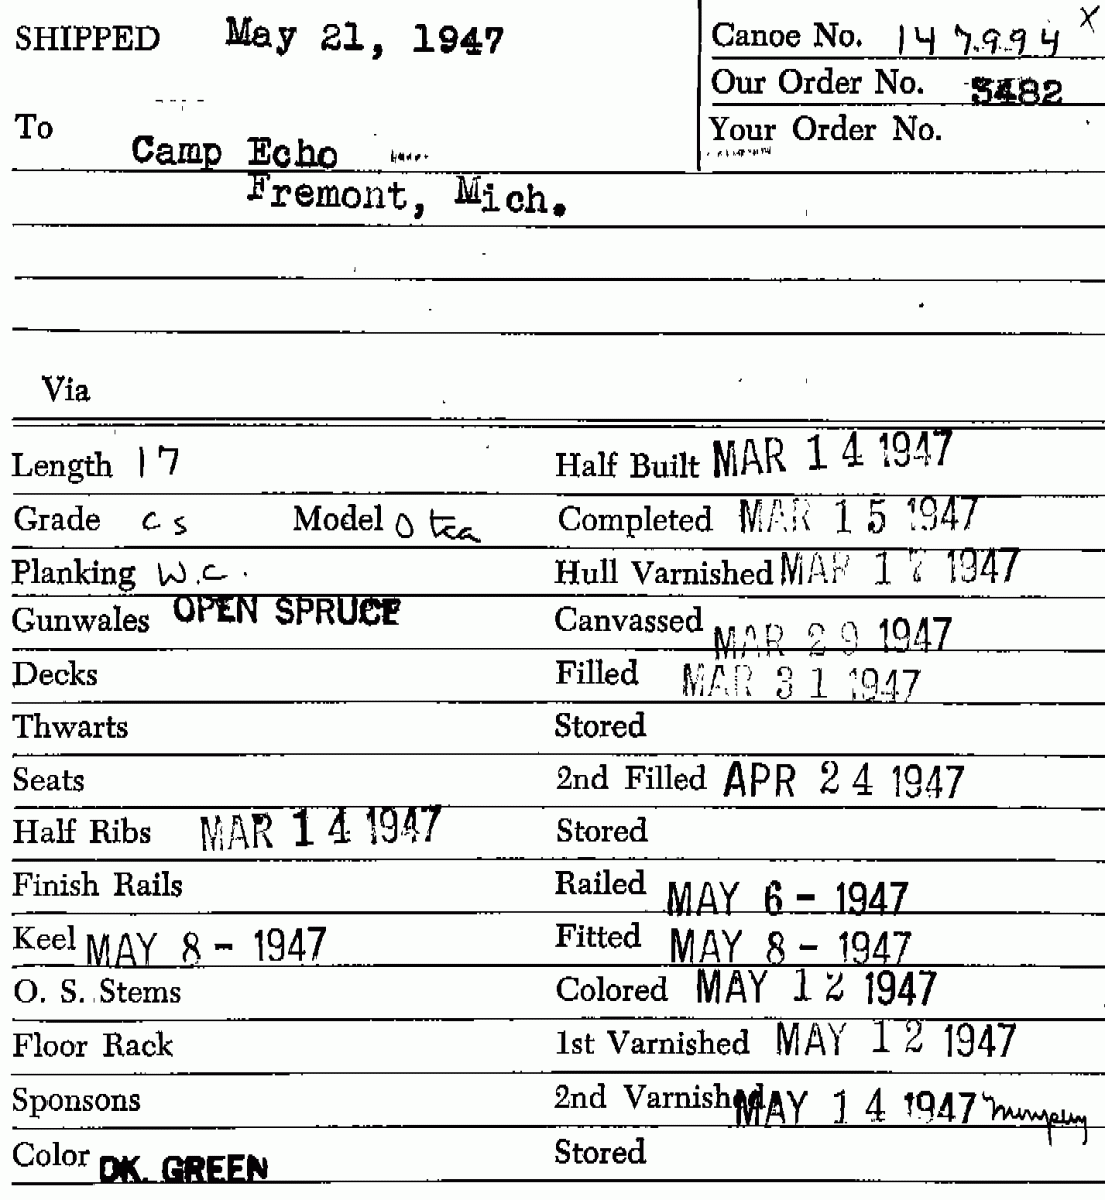 SHIPPED May 21, 1947
Canoe No. 147994 X
Our Order No. 5482
To
Your Order No.
Camp Echo
Fremont, Mich.
Via
Length 17 Half Built MAR 14 1947
Grade CS Model Otca Completed MAR 15 1947
Planking W.C. Hull Varnished MAR 17 1947
Gunwales OPEN SPRUCE Canvassed MAR 29 1947
Decks Filled MAR 31 1947
Thwarts Stored
Seats 2nd Filled APR 24 1947
Half Ribs MAR 14 1947 Stored
Finish Rails Railed MAY 6 - 1947
Keel MAY 8 - 1947 Fitted MAY 8 - 1947
O. S. Stems Colored MAY 12 1947
Floor Rack 1st Varnished MAY 12 1947
Sponsons 2nd Varnished MAY 14 1947
Color DK. GREEN Stored